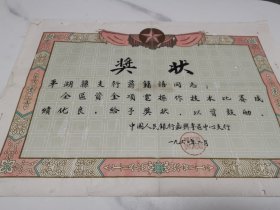 奖状
平湖县支行蒋锡清同志:
全区资金项电操作技术比赛成
绩优良,给予奖状,以资鼓励.
中国人民银行嘉兴専区中心支行
一九七 年 月